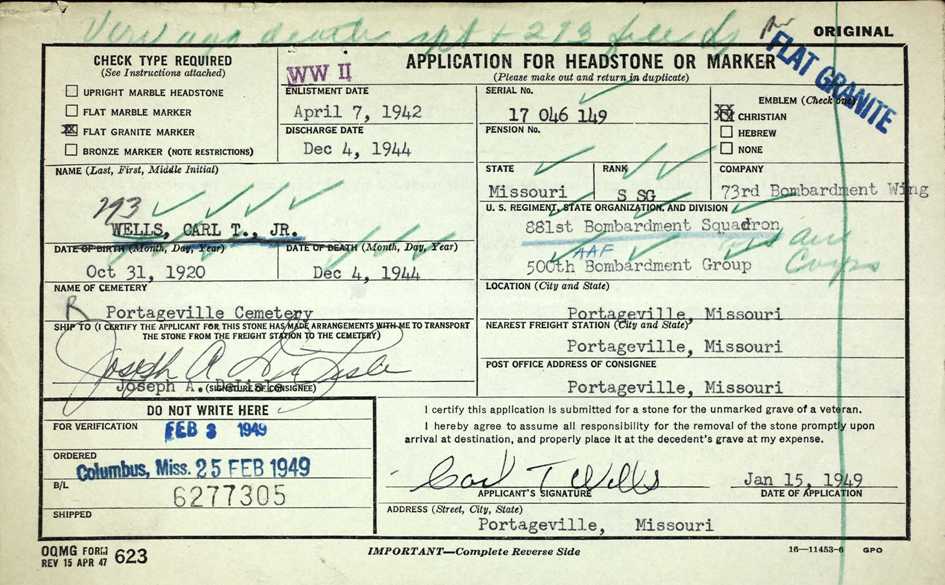 Very ago death rpt + 293 file
ORIGINAL
FLAT GRANITE
CHECK TYPE REQUIRED
(See Instructions attached)
UPRIGHT MARBLE HEADSTONE
FLAT MARBLE MARKER
XX FLAT GRANITE MARKER
BRONZE MARKER (NOTE RESTRICTIONS)
WW II
ENLISTMENT DATE
April 7, 1942
DISCHARGE DATE
Dec 4, 1944
APPLICATION FOR HEADSTONE OR MARKER
(Please make out and return in duplicate)
SERIAL No.
17 046 149
PENSION No.
EMBLEM (Check one)
XX CHRISTIAN
HEBREW
NONE
STATE
Missouri
RANK
S SG
COMPANY
73rd Bombardment Wing
NAME (Last, First, Middle Initial)
293
WELLS, CARL T., JR.
U. S. REGIMENT, STATE ORGANIZATION, AND DIVISION
881st Bombardment Squadron
AAF
500th Bombardment Group
US Air
Corps
DATE OF BIRTH (Month, Day, Year)
Oct 31, 1920
DATE OF DEATH (Month, Day, Year)
Dec 4, 1944
NAME OF CEMETERY
R Portageville Cemetery
LOCATION (City and State)
Portageville, Missouri
SHIP TO (I CERTIFY THE APPLICANT FOR THIS STONE HAS MADE ARRANGEMENTS WITH ME TO TRANSPORT
THE STONE FROM THE FREIGHT STATION TO THE CEMETERY)
Joseph A DeLisle
Joseph A. DeLisle
(SIGNATURE OF CONSIGNEE)
NEAREST FREIGHT STATION (City and State)
Portageville, Missouri
POST OFFICE ADDRESS OF CONSIGNEE
Portageville, Missouri
DO NOT WRITE HERE
FOR VERIFICATION
FEB 3 1949
ORDERED
Columbus, Miss. 25 FEB 1949
B/L
6277305
SHIPPED
I certify this application is submitted for a stone for the unmarked grave of a veteran.
I hereby agree to assume all responsibility for the removal of the stone promptly upon
arrival at destination, and properly place it at the decedent's grave at my expense.
Carl T Wells
APPLICANT'S SIGNATURE
Jan 15, 1949
DATE OF APPLICATION
ADDRESS (Street, City, State)
Portageville, Missouri
OQMG FORM
REV 15 APR 47 623
IMPORTANT—Complete Reverse Side
16—11453-6 GPO